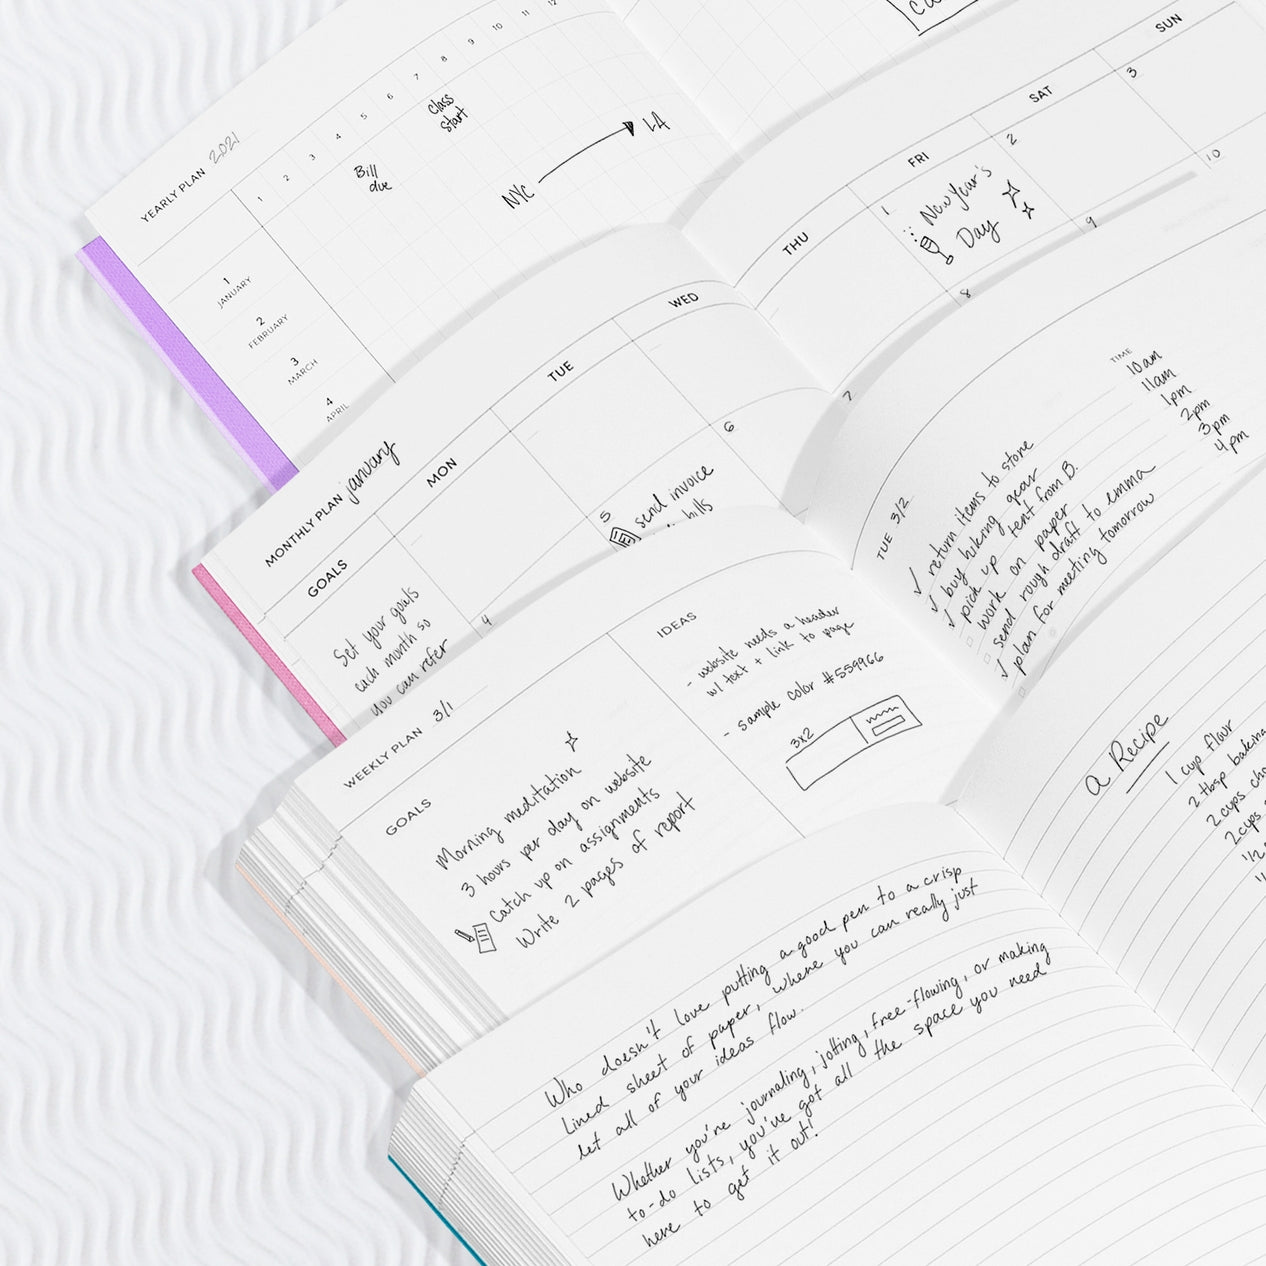 YEARLY PLAN 2021
1 2 3 4 5 6 7 8 9 10 11 12
Class
start
Bill
due
NYC
LA
1
JANUARY
2
FEBRUARY
3
MARCH
4
APRIL
MONTHLY PLAN january
GOALS
MON
TUE
WED
THU
FRI
SAT
SUN
1
2
3
New Year's
Day
4
5
6
7
8
9
10
send invoice
bills
Set your goals
each month so
you can refer
WEEKLY PLAN 3/1
GOALS
Morning meditation
3 hours per day on website
Catch up on assignments
Write 2 pages of report
IDEAS
- website needs a header
w/ text + link to page
- sample color #559966
3x2
TUE 3/2
TIME
return items to store 10am
buy hiking gear 11am
pick up tent from B. 1pm
work on paper 2pm
send rough draft to emma 3pm
plan for meeting tomorrow 4pm
Who doesn't love putting a good pen to a crisp
lined sheet of paper, where you can really just
let all of your ideas flow.
Whether you're journaling, jotting, free-flowing, or making
to-do lists, you've got all the space you need
here to get it out!
a Recipe
1 cup flour
2 tbsp baking
2 cups
2 cups
1/2